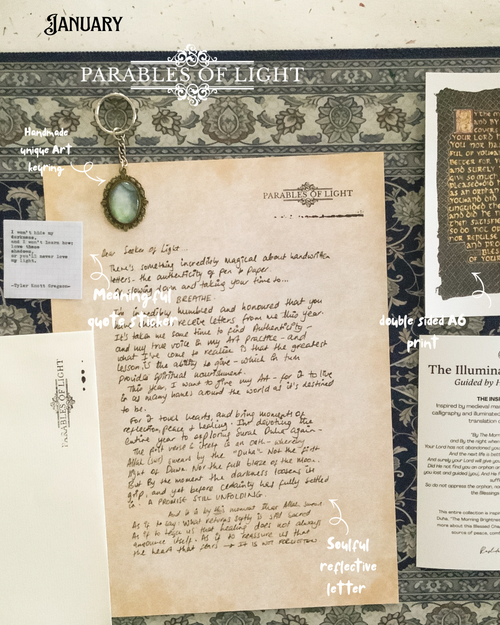 JANUARY
PARABLES OF LIGHT
Handmade
unique Art
keyring
PARABLES OF LIGHT
I won't hide my
darkness,
and I won't learn how;
love these
shadows,
or you'll never love
my light.
-Tyler Knott Gregson-
Meaningful
quote sticker
Dear Seeker of Light
There's something incredibly magical about handwritten
letters - the authenticity of pen & paper.
Of slowing down and taking your time to...
BREATHE.
I'm incredibly humbled and honoured that you
receive letters from me this year.
It's taken me some time to find authenticity -
and my true voice in my Art practise - and
what I've come to realise is that the greatest
lesson is the ability to give - which in turn
provides spiritual nourishment.
This year, I want to give my Art - for it to live
in as many homes around the world as it's destined
to be.
For it touch hearts, and bring moments of
reflection, peace & healing. I'm devoting the
entire year to exploring Surah Duha again -
The first verse itself is an oath - wherein
Allah (swt) swears by the "Duha". Not the first
light of Dawn. Nor the full blaze of the noon.
But by the moment the darkness loosens its
grip, and yet before certainty has fully settled
in. A PROMISE STILL UNFOLDING
And it is by this moment that Allah swears
As if to say: What returns softly is still sacred
As if to teach us that healing does not always
announce itself. As if to reassure us that
the heart that soars → IT IS NOT FORGOTTEN
Soulful
reflective
letter
PARABLES OF LIGHT
double sided A6
print
The Illumina
Guided by H
THE INS
Inspired by medieval mo
calligraphy and illuminati
transp
"By The Morn
and By the night when
Your Lord has not abandoned you
And the next life is bett
And surely your Lord will give so mu
Did He not find you an orphan
you lost and guided you; And He fo
satisfied
So do not oppress the orphan, no
the Blessing
This entire collection is inspired
Duha, "The Morning Brightness
more about this Blessed Chapt
source of peace, comfort